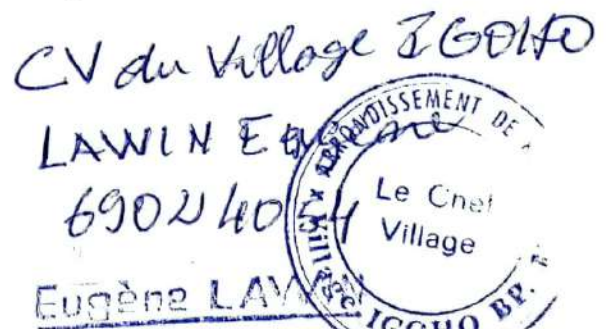 CV du Village IGOHO
LAWIN Eugène
Eugène LAWIN
ARRONDISSEMENT DE
Le Chef
Village
Village IGOHO BP.